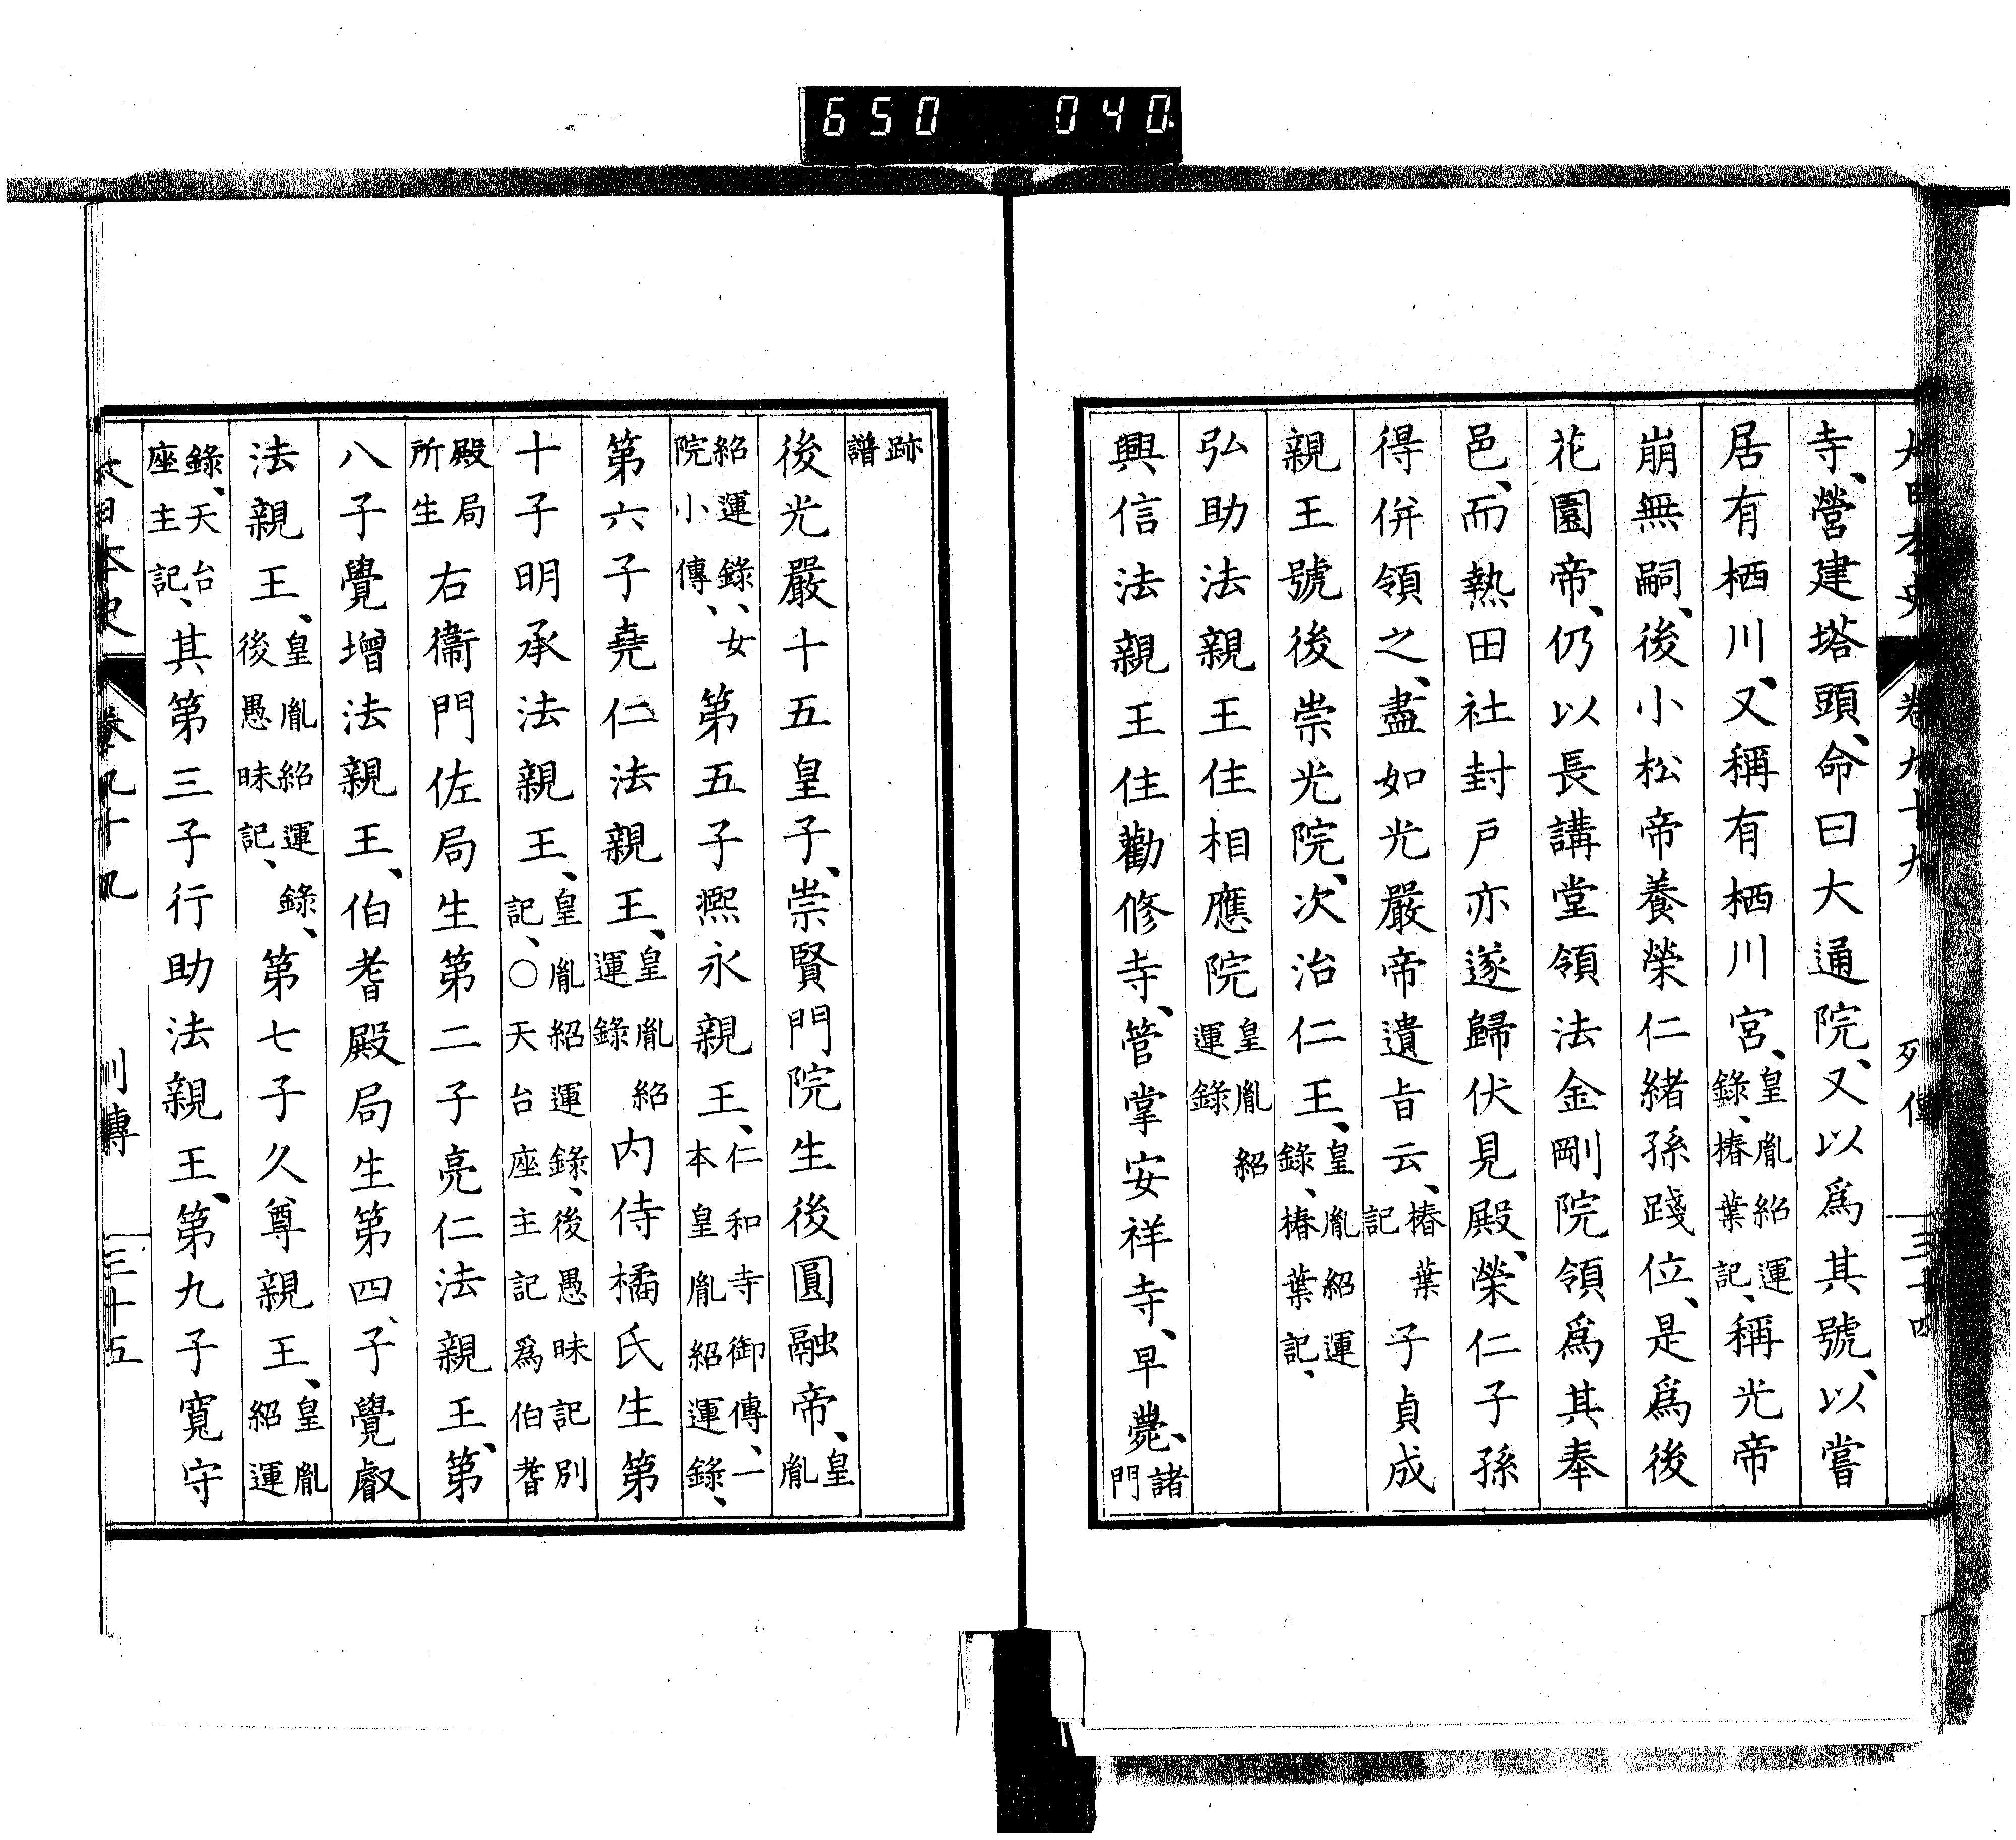 650 040.
大日本史 卷九十九 列傳 三十四
寺、營建塔頭、命曰大通院、又以爲其號、以嘗
居有栖川、又稱有栖川宮、皇胤紹運錄、椿葉記、稱光帝
崩無嗣、後小松帝養榮仁緒孫踐位、是爲後
花園帝、仍以長講堂領法金剛院領爲其奉
邑、而熱田社封戶亦遂歸伏見殿、榮仁子孫
得併領之、盡如光嚴帝遺旨云、椿葉記子貞成
親王號後崇光院、次治仁王、皇胤紹運錄、椿葉記、
弘助法親王住相應院皇胤紹運錄
興信法親王住勸修寺、管掌安祥寺、早薨、諸門
跡譜
後光嚴十五皇子、崇賢門院生後圓融帝、皇胤
紹運錄、女院小傳、第五子熙永親王、仁和寺御傳、一本皇胤紹運錄、
第六子堯仁法親王、皇胤紹運錄内侍橘氏生第
十子明承法親王、皇胤紹運錄、後愚昧記別記、○天台座主記爲伯耆
殿局所生右衞門佐局生第二子亮仁法親王、第
八子覺增法親王、伯耆殿局生第四、子覺叡
法親王、皇胤紹運錄、後愚昧記、第七子久尊親王、皇胤紹運
錄、天台座主記、其第三子行助法親王、第九子寬守
大日本史 卷九十九 列傳 三十五